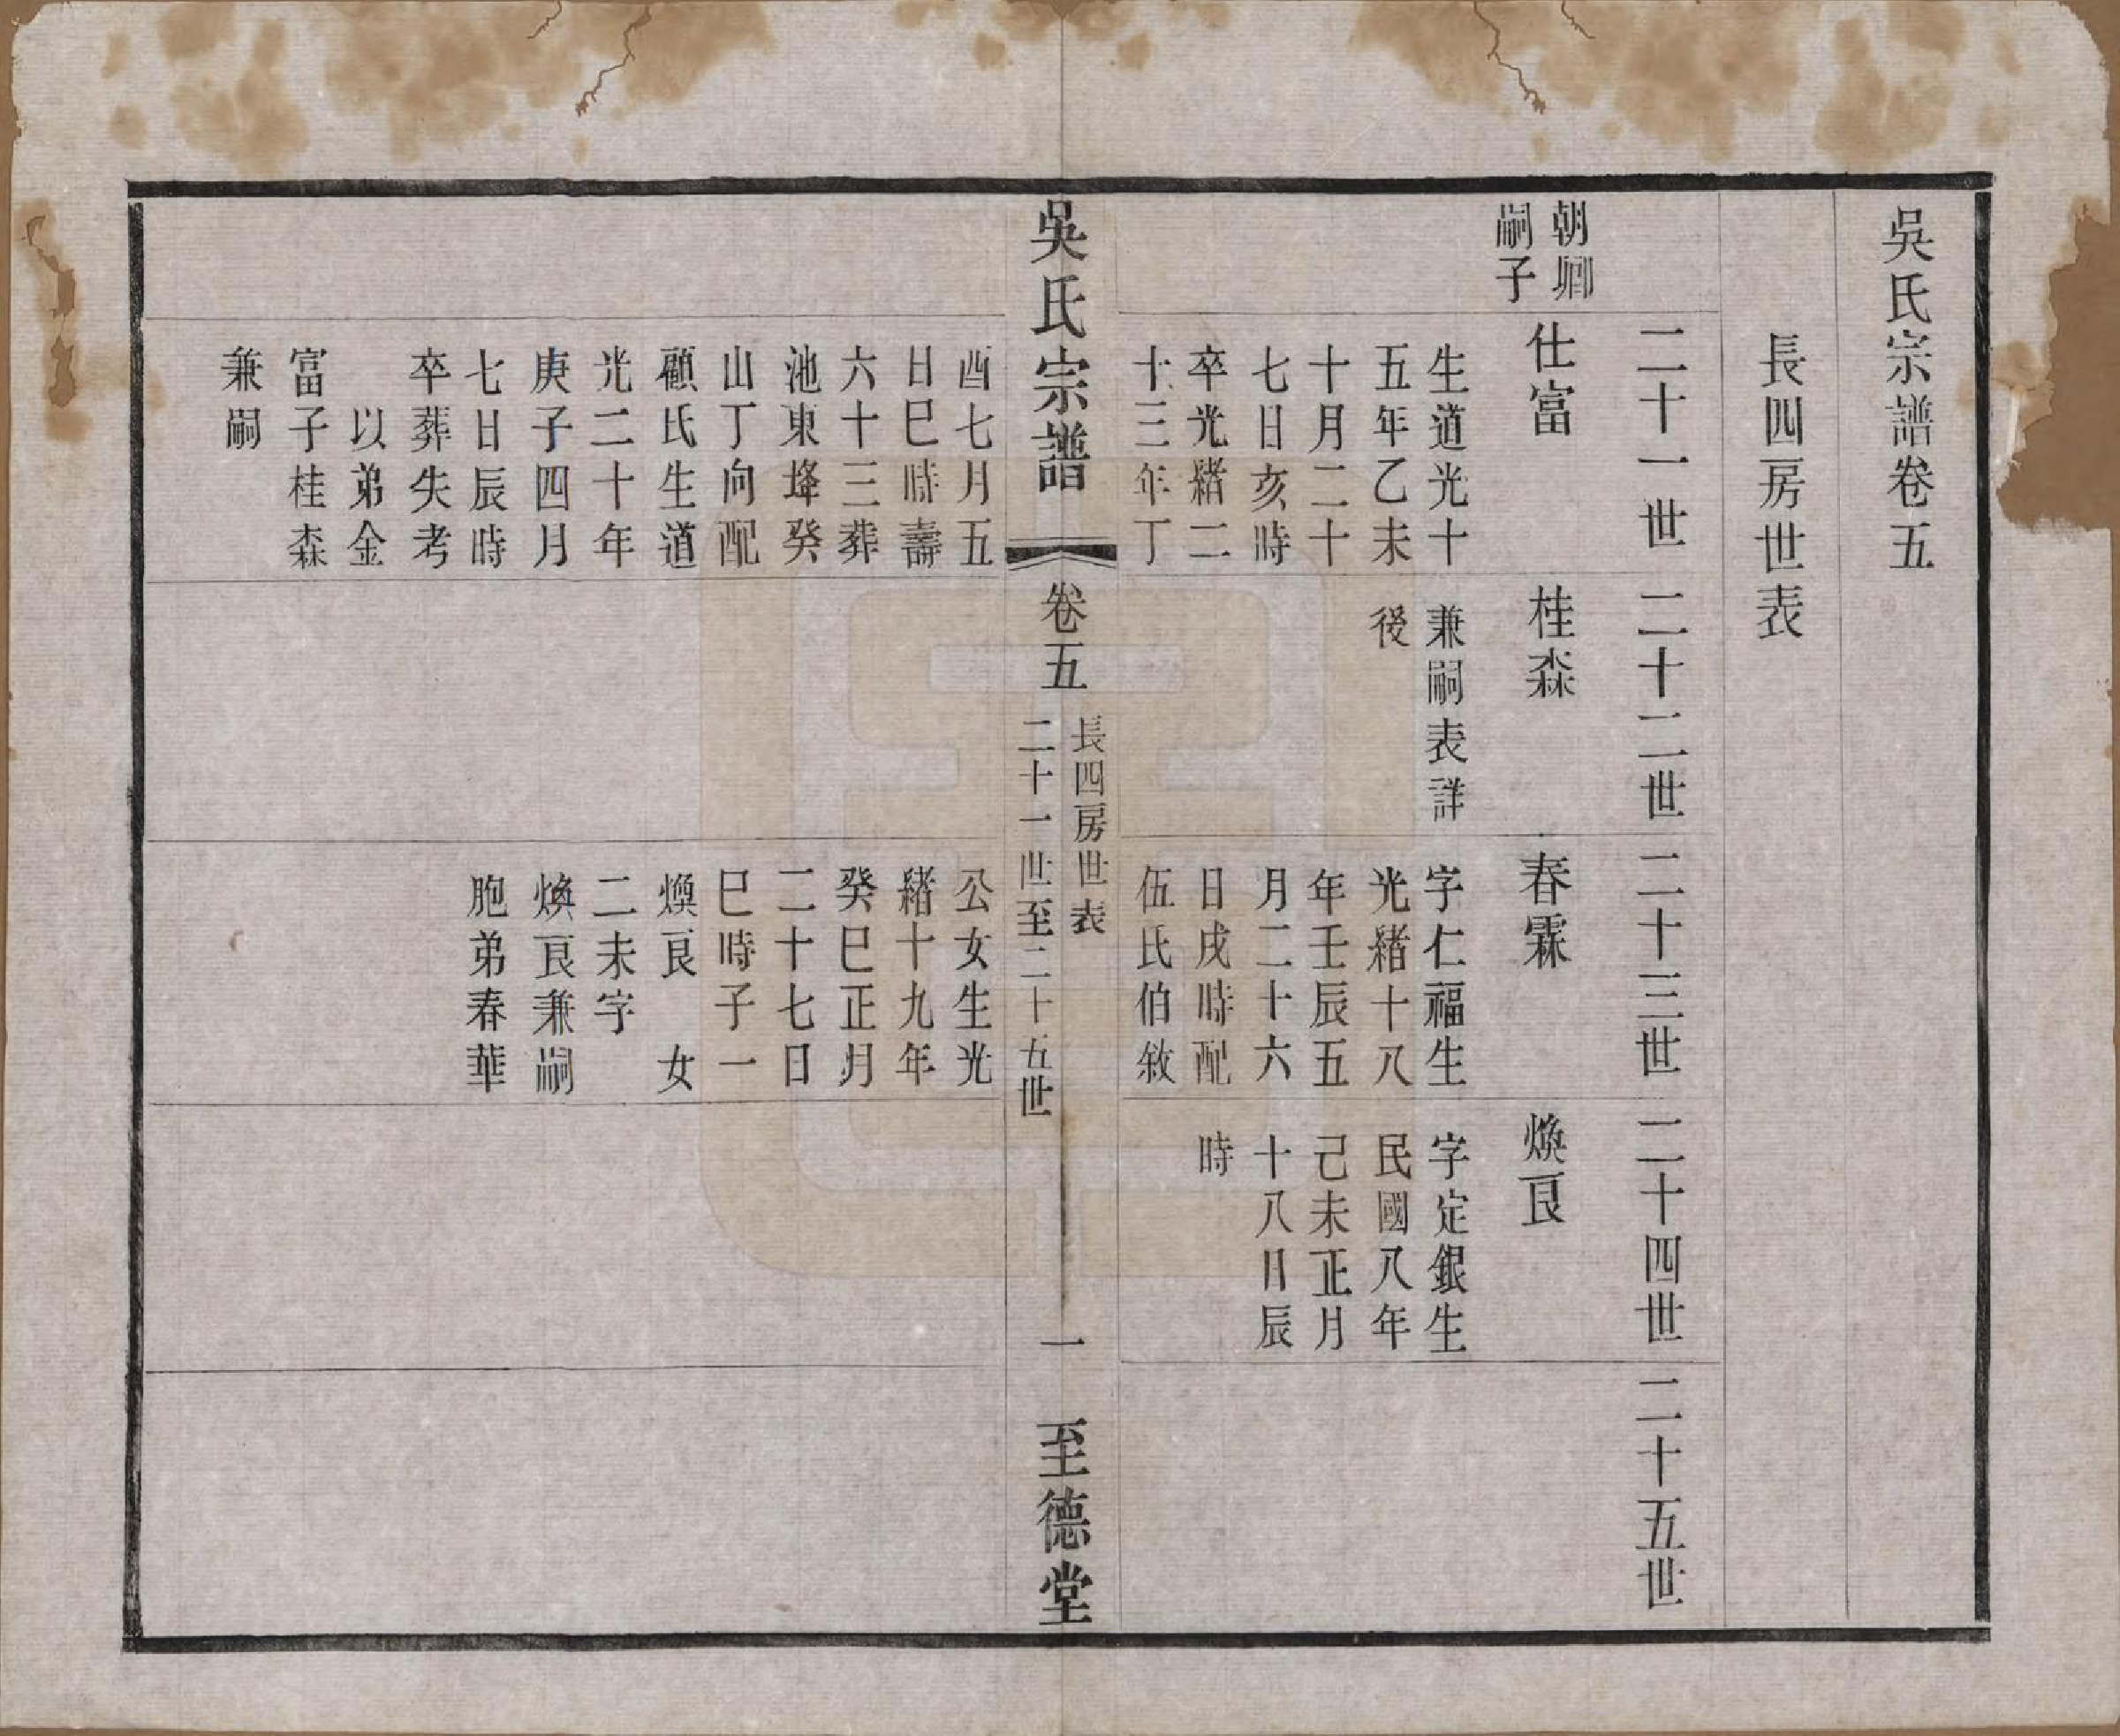 吳氏宗譜卷五
長四房世表
二十一世
二十二世
二十三世
二十四世
二十五世
朝卿
嗣子
仕富
生道光十
五年乙未
十月二十
七日亥時
卒光緒二
十三年丁
酉七月五
日巳時壽
六十三葬
池東埄癸
山丁向配
顧氏生道
光二十年
庚子四月
七日辰時
卒葬失考
以弟金
富子桂森
兼嗣
桂森
兼嗣表詳
後
春霖
字仁福生
光緒十八
年壬辰五
月二十六
日戌時配
伍氏伯敘
公女生光
緒十九年
癸巳正月
二十七日
巳時子一
煥良　女
二未字
煥良兼嗣
胞弟春華
煥良
字定銀生
民國八年
己未正月
十八日辰
時
吳氏宗譜
卷五
長四房世表
二十一世至二十五世
一
至德堂